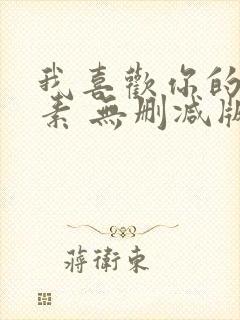 我喜歡你的
素 無刪減版
蔣衛東